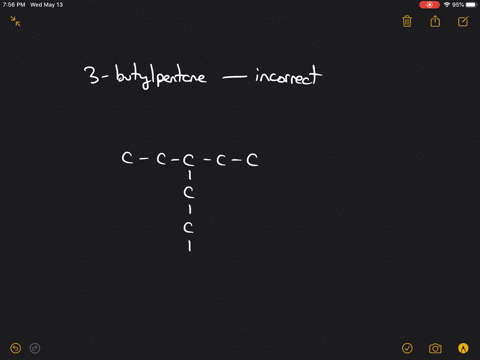 7:56 PM Wed May 13
95%
3-butylpentane — incorrect
C - C - C - C - C
|
C
|
C
|